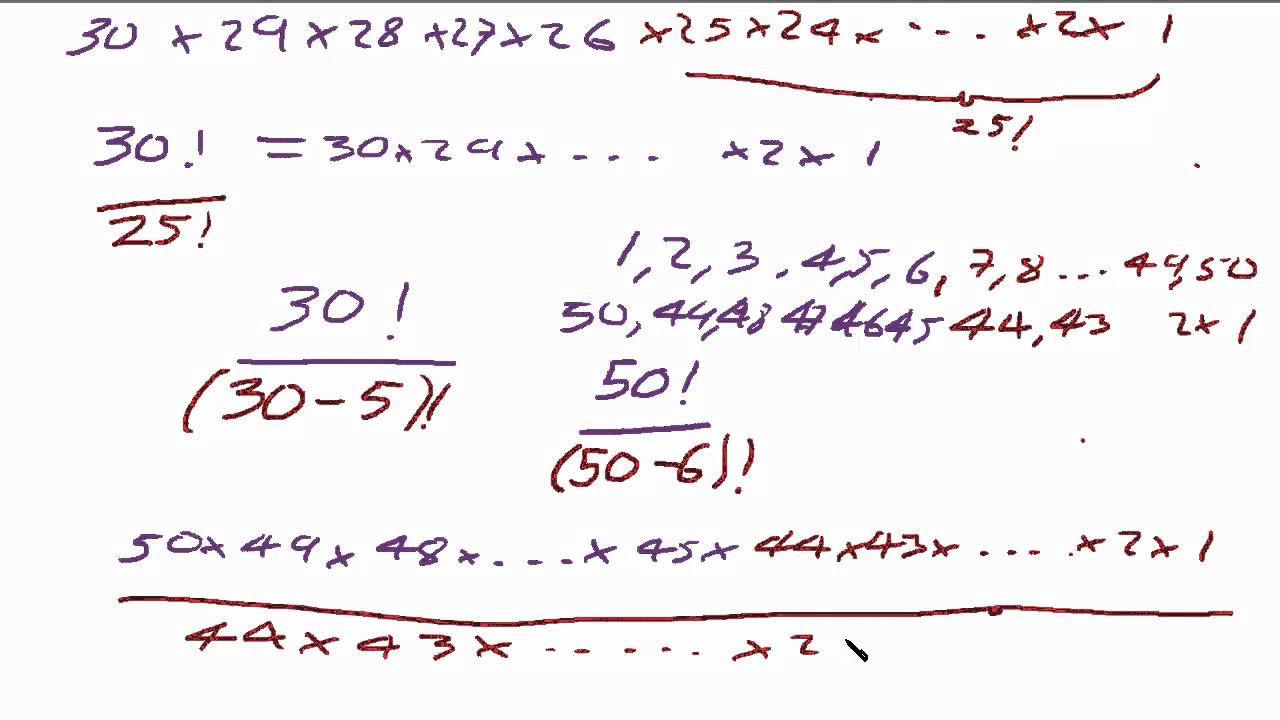 30 × 29 × 28 × 27 × 26 × 25 × 24 × .... × 2 × 1
25!
30! = 30 × 29 × .... × 2 × 1
25!
1, 2, 3, 4, 5, 6, 7, 8 ... 49, 50
30!
50, 49, 48 47 46 45 44, 43 2 × 1
(30 - 5)!
50!
(50 - 6)!
50 × 49 × 48 × .... × 45 × 44 × 43 × .... × 2 × 1
44 × 43 × ...... × 2